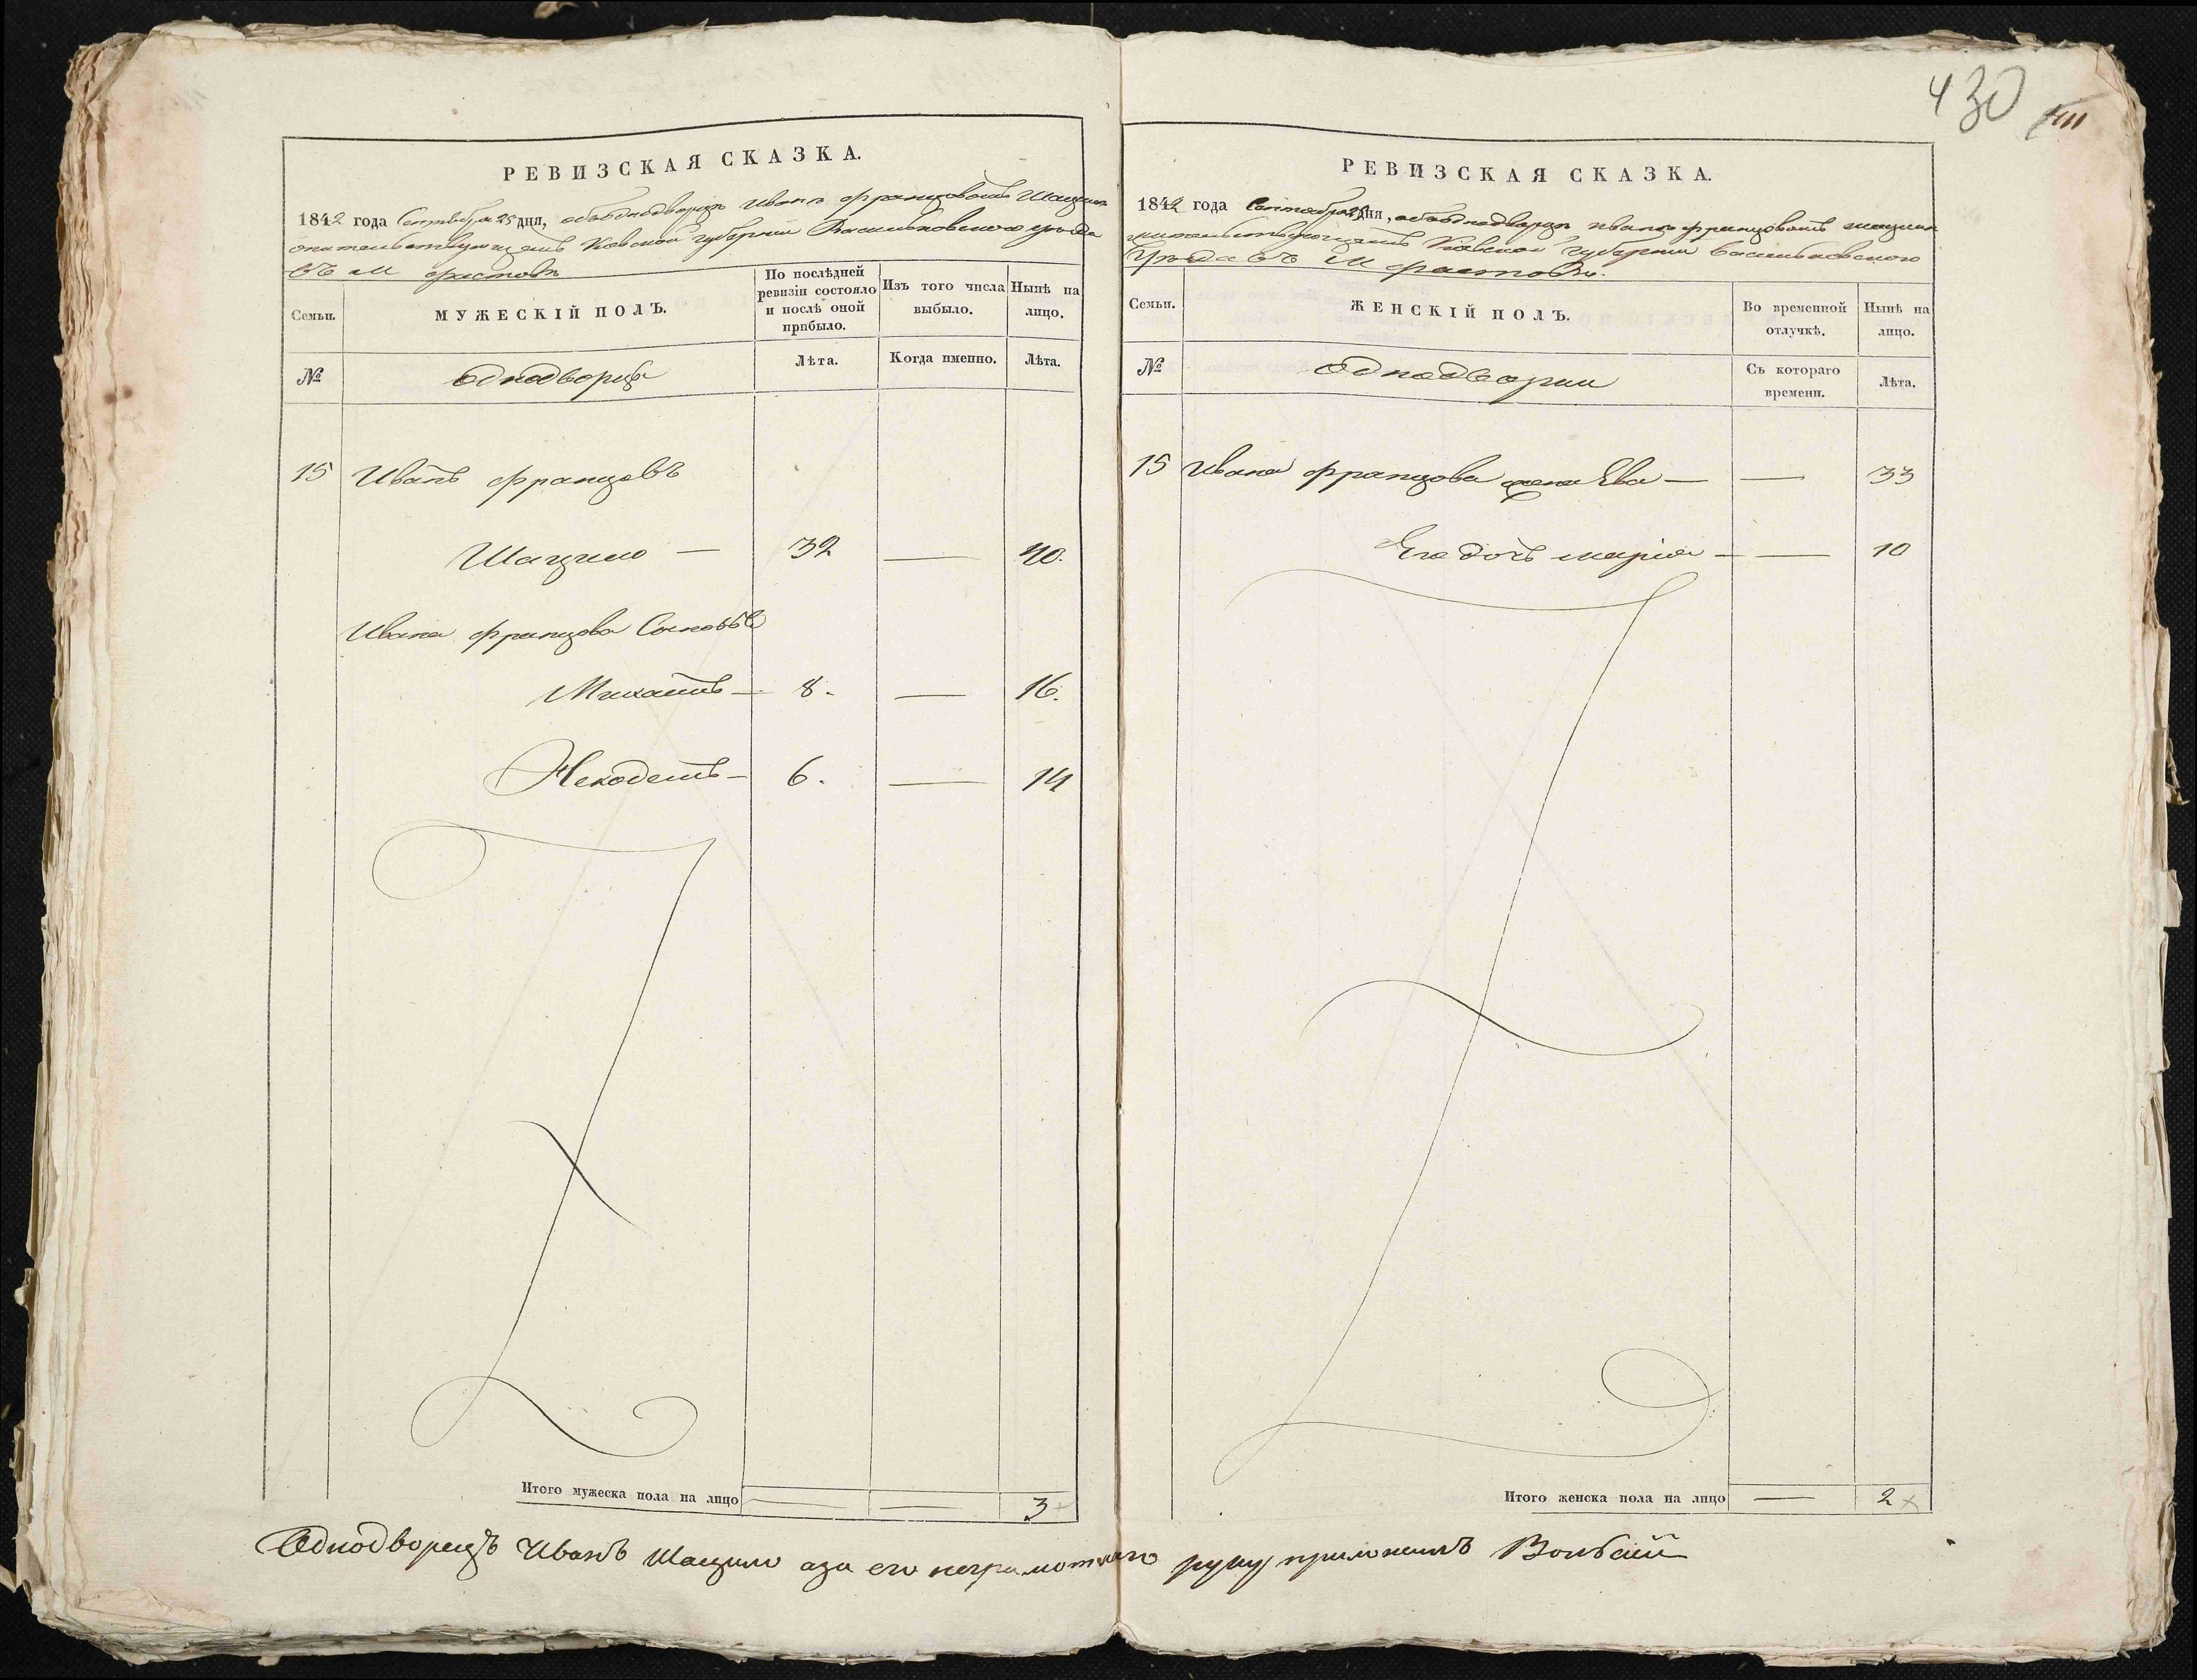 430
РЕВИЗСКАЯ СКАЗКА.
1842 года Сентября 25 дня, объ однодворцѣ Иванѣ Францовомъ Шацило
жительствующемъ Кіевской губерніи Васильковского уѣзда
въ М Фастовѣ
Семьи.
МУЖЕСКІЙ ПОЛЪ.
По послѣдней ревизіи состояло и послѣ оной прибыло.
Изъ того числа выбыло.
Нынѣ на лицо.
№
Однодворцы
Лѣта.
Когда именно.
Лѣта.
15 Иванъ Францовъ
Шацило — 32 — 40.
Ивана Францова Сыновья
Михаилъ — 8. — 16.
— 6. — 14
Итого мужеска пола на лицо — — 3
РЕВИЗСКАЯ СКАЗКА.
1842 года Сентября 25 дня, объ однодворцѣ Иванѣ Францовомъ Шацило
жительствующемъ Кіевской губерніи Васильковского
Уѣзда въ М Фастовѣ.
Семьи.
ЖЕНСКІЙ ПОЛЪ.
Во временной отлучкѣ.
Нынѣ на лицо.
№
Однодворки
Съ котораго времени.
Лѣта.
15 Ивана Францова жена Ева — — 33
Его дочь Марія — — 10
Итого женска пола на лицо — 2
Однодворецъ Иванъ Шацило аза его неграмотного руку приложилъ